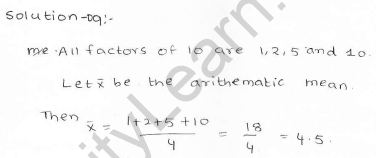 Solution-09:-
The All factors of 10 are 1, 2, 5 and 10.
Let x̄ be the arithematic mean.
Then x̄ = 1+2+5+10 / 4 = 18 / 4 = 4.5.
ityLearn.